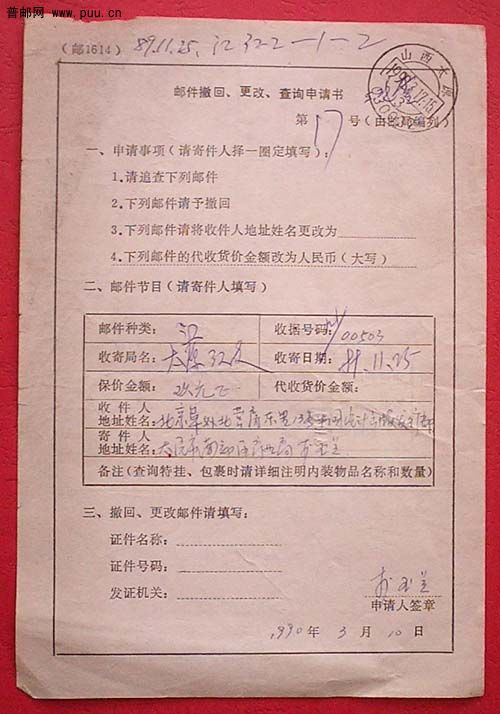 普邮网 www.puu.cn
(邮1614) 89.11.25.
山西太原
邮件撤回、更改、查询申请书
第 17 号(由邮局编列)
一、申请事项(请寄件人择一圈定填写):
1.请追查下列邮件
2.下列邮件请予撤回
3.下列邮件请将收件人地址姓名更改为
4.下列邮件的代收货价金额改为人民币(大写)
二、邮件节目(请寄件人填写)
邮件种类: 收据号码: 00503
收寄局名: 太原 收寄日期: 89.11.25
保价金额: 代收货价金额:
收件人
地址姓名: 北京阜外北营房东里
寄件人
地址姓名: 太原市南郊区
备注(查询特挂、包裹时请详细注明内装物品名称和数量)
三、撤回、更改邮件请填写:
证件名称:
证件号码:
发证机关:
申请人签章
1990 年 3 月 10 日